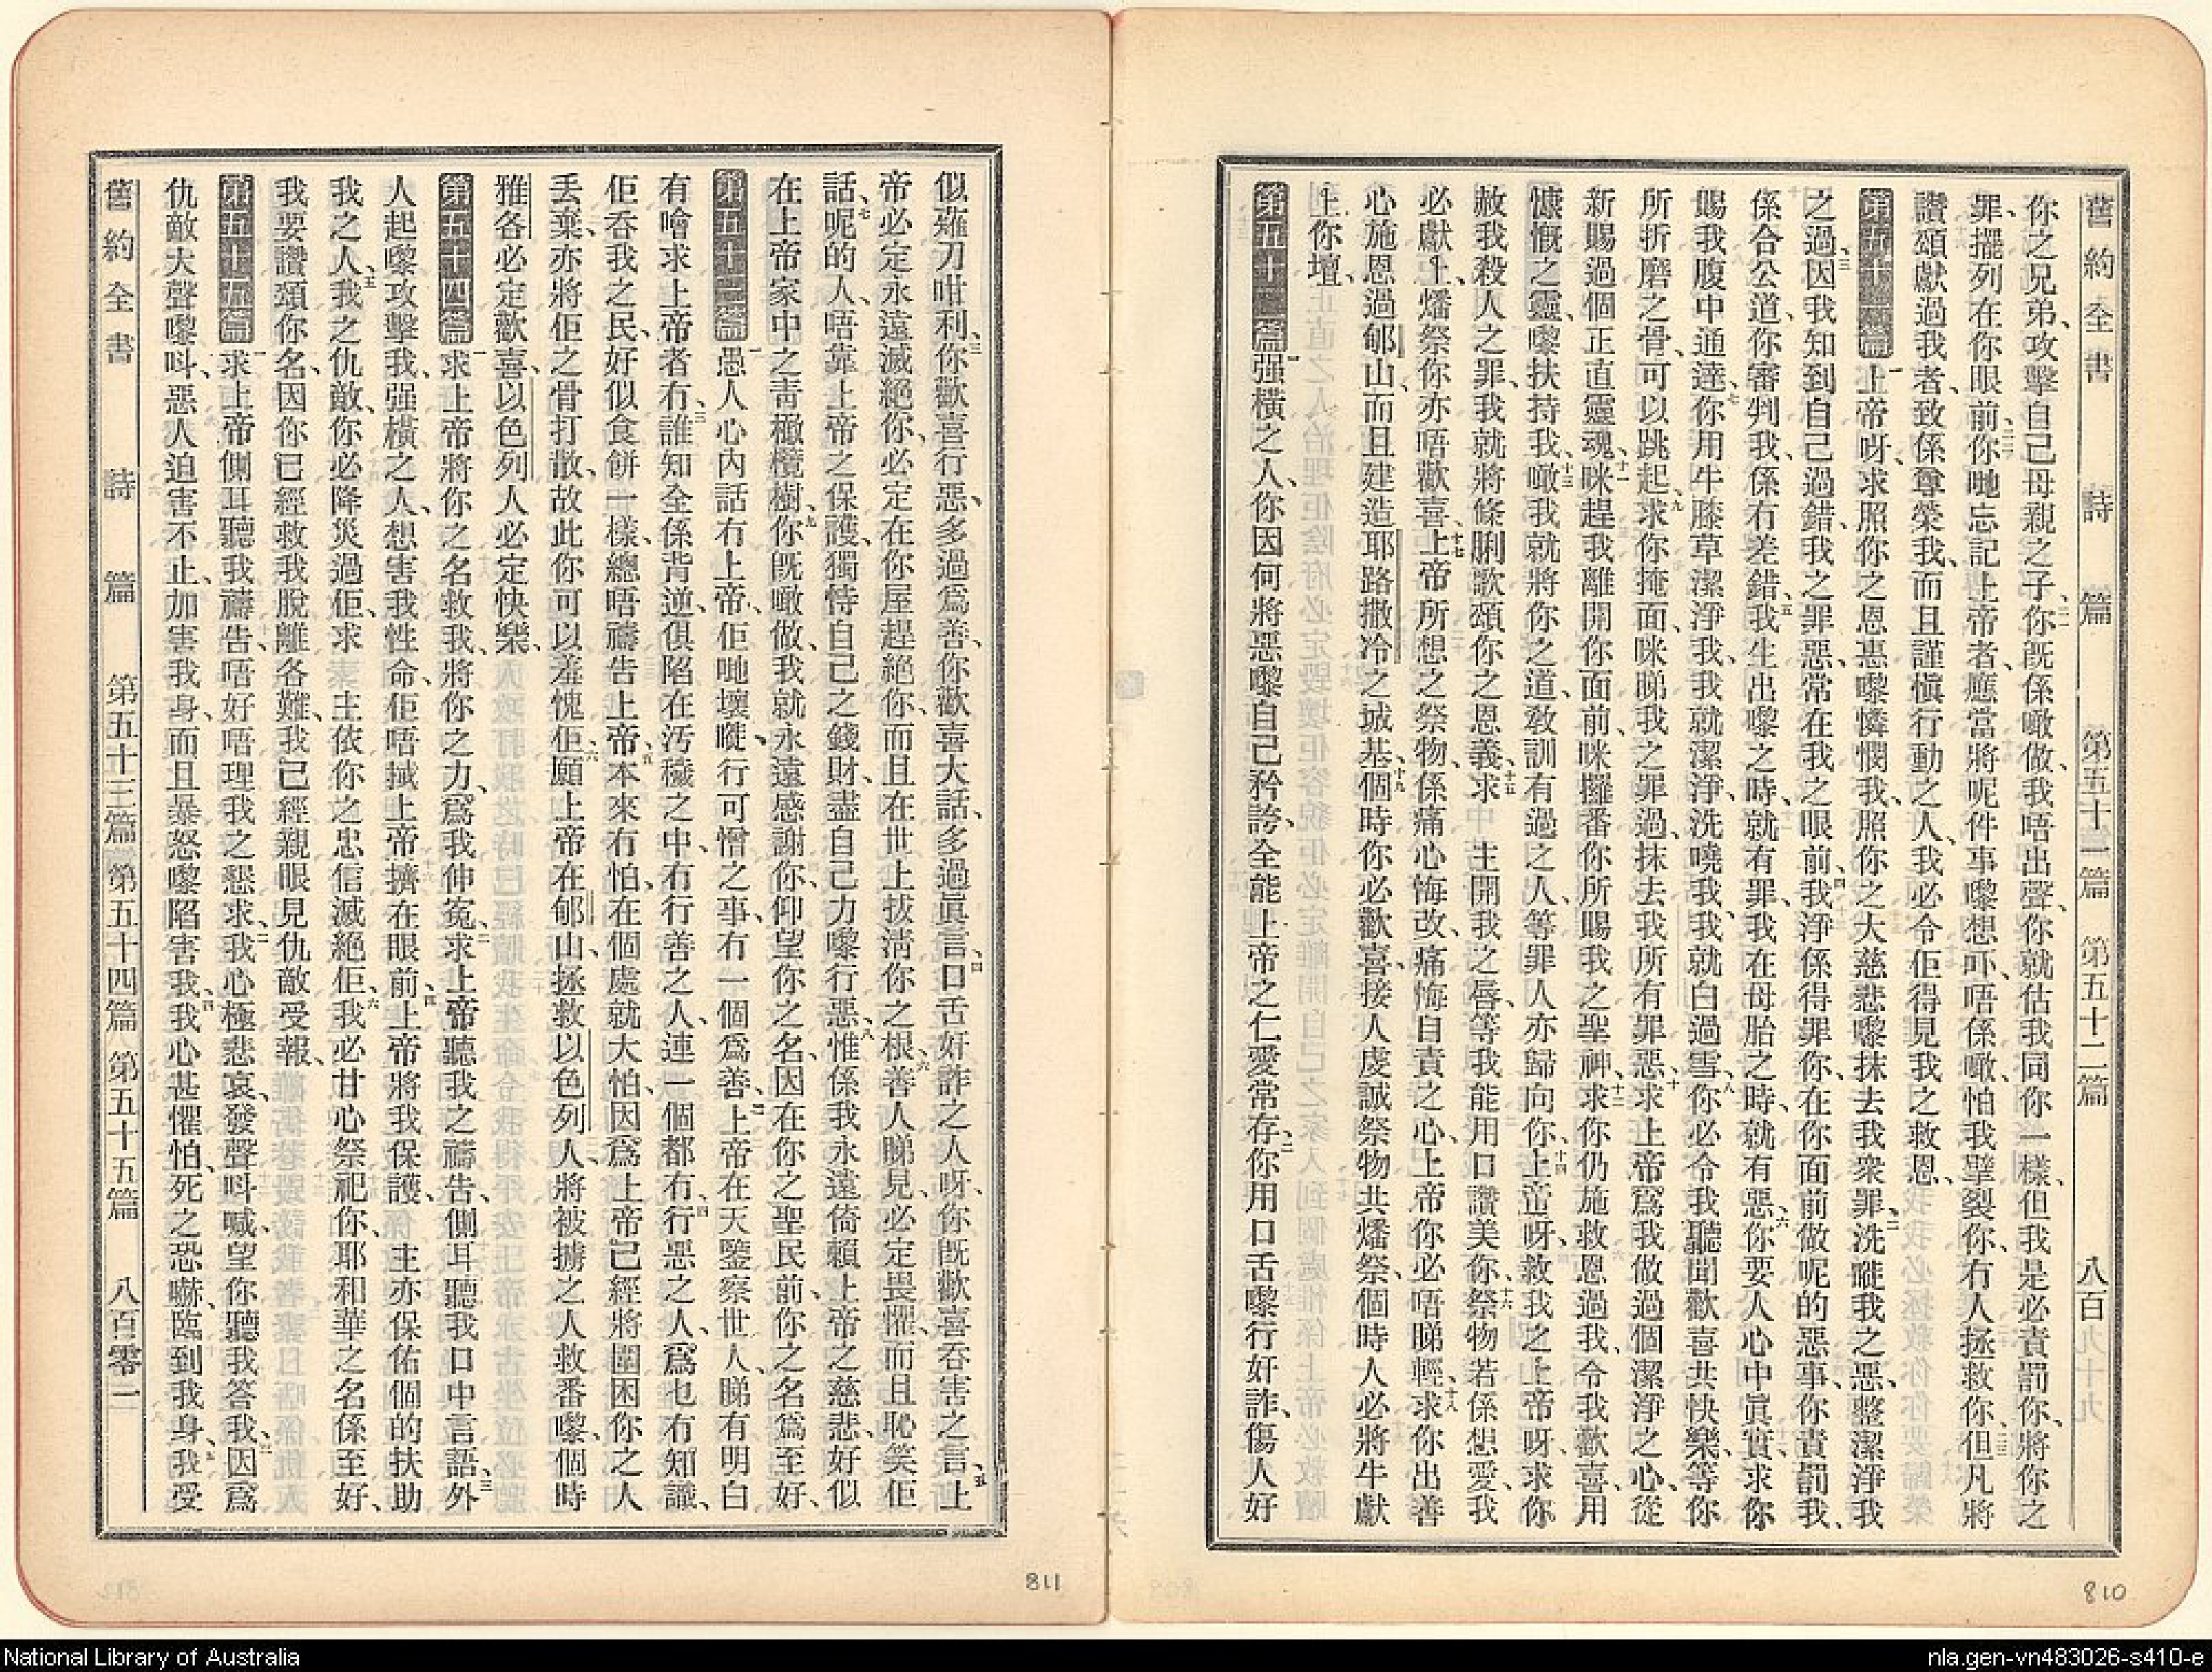 舊約全書 詩篇 第五十一篇 第五十二篇 八百
你之兄弟、攻擊自己母親之子、二一你既係噉做、我唔出聲、你就估我同你一樣、但我是必責罰你、將你之
罪、擺列在你眼前、二二你哋忘記上帝者、應當將呢件事嚟想吓、唔係噉、怕我擘裂你、冇人拯救你、二三但凡將
讚頌獻過我者、致係尊榮我、而且謹愼行動之人、我必令佢得見我之救恩、
第五十一篇 一上帝呀、求照你之恩惠嚟憐憫我、照你之大慈悲嚟抹去我衆罪、二洗嘥我之惡、整潔淨我
之過、三因我知到自己過錯、我之罪惡、常在我之眼前、四我淨係得罪你、在你面前做呢的惡事、你責罰我、
係合公道、你審判我、係冇差錯、五我生出嚟之時、就有罪、我在母胎之時、就有惡、六你要人心中眞實、求你
賜我腹中通達、七你用牛膝草潔淨我、我就潔淨、洗嘵我、我就白過雪、八你必令我聽聞歡喜共快樂、等你
所折磨之骨、可以跳起、九求你掩面、咪睇我之罪過、抹去我所有罪惡、十求上帝爲我做過個潔淨之心、從
新賜過個正直靈魂、十一咪趕我離開你面前、咪攞番你所賜我之聖神、十二求你仍施救恩過我、令我歡喜、用
慷慨之靈、嚟扶持我、十三噉我就將你之道、教訓有過之人、等罪人亦歸向你、十四上帝呀、救我之上帝呀、求你
赦我殺人之罪、我就將條脷歌頌你之恩義、十五求 主開我之唇、等我能用口讚美你、十六祭物若係想愛、我
必獻上、燔祭你亦唔歡喜、十七上帝所想之祭物、係痛心悔改、痛悔自責之心、上帝你必唔睇輕、十八求你出善
心施恩過郇山、而且建造耶路撒冷之城基、十九個時你必歡喜、接人虔誠祭物共燔祭、個時人必將牛獻
上你壇、
第五十二篇 一强橫之人、你因何將惡嚟自己矜誇、全能上帝之仁愛常存、二你用口舌嚟行奸詐、傷人好
似薙刀咁利、三你歡喜行惡、多過爲善、你歡喜大話、多過眞言、四口舌好詐之人呀、你既歡喜吞害之言、五上
帝必定永遠滅絕你、必定在你屋趕絕你、而且在世上拔淸你之根、六善人睇見、必定畏懼、而且恥笑佢
話、七呢的人、唔靠上帝之保護、獨恃自己之錢財、盡自己力嚟行惡、八惟係我永遠倚賴上帝之慈悲、好似
在上帝家中之靑橄欖樹、九你既噉做、我就永遠感謝你、仰望你之名、因在你之聖民前、你之名爲至好、
第五十三篇 一愚人心內話冇上帝、佢哋壞嘥、行可憎之事、冇一個爲善、二上帝在天鑒察世人、睇有明白
有噲求上帝者冇、三誰知全係背逆、俱陷在汚穢之中、冇行善之人、連一個都冇、四行惡之人、爲乜冇知識、
佢吞我之民、好似食餅一樣、總唔禱告上帝、五本來冇怕、在個處就大怕、因爲上帝已經將圍困你之人
丟棄、亦將佢之骨打散、故此你可以羞愧佢、六願上帝在郇山、拯救以色列人、將被擄之人救番嚟、個時
雅各必定歡喜、以色列人必定快樂、
第五十四篇 一求上帝將你之名救我、將你之力、爲我伸冤、二求上帝聽我之禱告、側耳聽我口中言語、三外
人起嚟攻擊我、强橫之人、想害我性命、佢唔搣上帝擠在眼前、四上帝將我保護、 主亦保佑個的扶助
我之人、五我之仇敵、你必降災過佢、求 主依你之忠信滅絕佢、六我必甘心祭祀你、耶和華之名係至好、
我要讚頌你名、因你已經救我脫離各難、我已經親眼見仇敵受報、
第五十五篇 一求上帝側耳聽我禱告、唔好唔理我之懇求、二我心極悲哀、發聲呌喊、望你聽我答我、三因爲
仇敵大聲嚟呌、惡人迫害不止、加害我身、而且暴怒嚟陷害我、四我心甚懼怕、死之恐嚇、臨到我身、五我受
舊約全書 詩篇 第五十三篇 第五十四篇 第五十五篇 八百零一
811
810
National Library of Australia
nla.gen-vn483026-s410-e